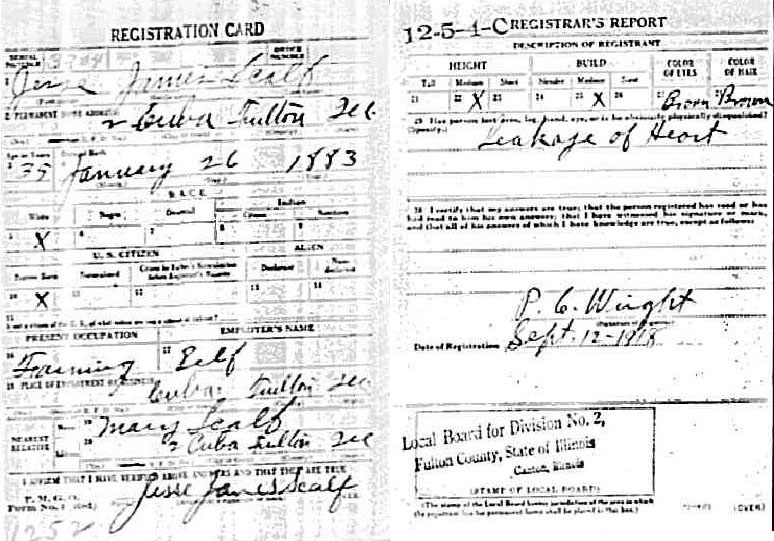 REGISTRATION CARD
SERIAL NUMBER
ORDER NUMBER
1 Jesse James Scalf
2 PERMANENT HOME ADDRESS
2 Cuba Fulton Ill
Age in Years
3 35 January 26 1883
RACE
White Negro Oriental Indian
Citizen Noncitizen
5 X 6 7 8 9
U. S. CITIZEN ALIEN
Native Born Naturalized Citizen by Father's Naturalization Before Registrant's Majority Declarant Non-declarant
10 X 11 12 13 14
15
PRESENT OCCUPATION EMPLOYER'S NAME
16 Farming 17 Self
18 PLACE OF EMPLOYMENT OR BUSINESS
Cuba Fulton Ill
NEAREST RELATIVE
Name 19 Mary Scalf
20 2 Cuba Fulton Ill
I AFFIRM THAT I HAVE VERIFIED ABOVE ANSWERS AND THAT THEY ARE TRUE
P. M. G. O.
Form No. 1
Jesse James Scalf
1252
12-5-1-C REGISTRAR'S REPORT
DESCRIPTION OF REGISTRANT
HEIGHT BUILD COLOR OF EYES COLOR OF HAIR
Tall Medium Short Slender Medium Stout
21 22 X 23 24 25 X 26 27 Brown Brown
29 Has person lost arm, leg, hand, eye, or is he obviously physically disqualified?
(Specify.)
Leakage of Heart
30 I certify that my answers are true; that the person registered has read or has
had read to him his own answers; that I have witnessed his signature or mark,
and that all of his answers of which I have knowledge are true, except as follows:
P. C. Wright
Date of Registration Sept. 12-1918
Local Board for Division No. 2,
Fulton County, State of Illinois
Canton, Illinois
(STAMP OF LOCAL BOARD)
(The stamp of the Local Board having jurisdiction of the area in which
the registrant has his permanent home shall be placed in this box.)
(OVER)